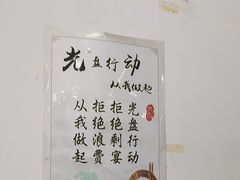 光盘行动
从我做起
光盘行动
拒绝剩宴
拒绝浪费
从我做起